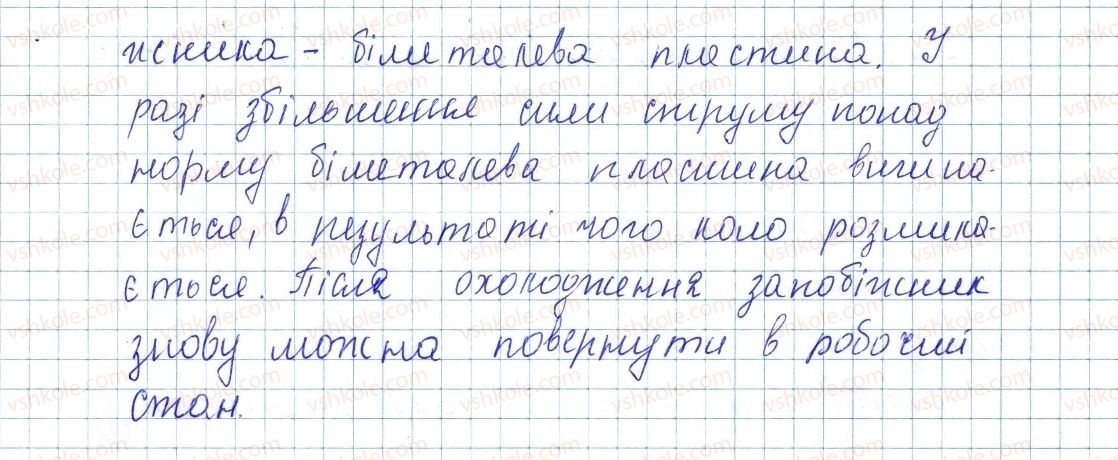 жника - біметалева пластина. У
разі збільшення сили струму понад
норму біметалева пластина вигина-
ється, в результаті чого коло розмика-
ється. Після охолодження запобіжник
знову можна повернути в робочий
стан.